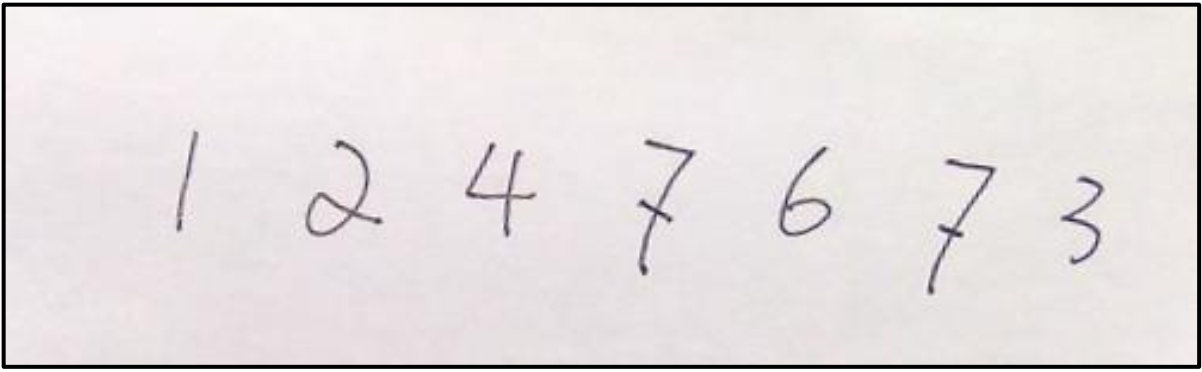 1 2 4 7 6 7 3